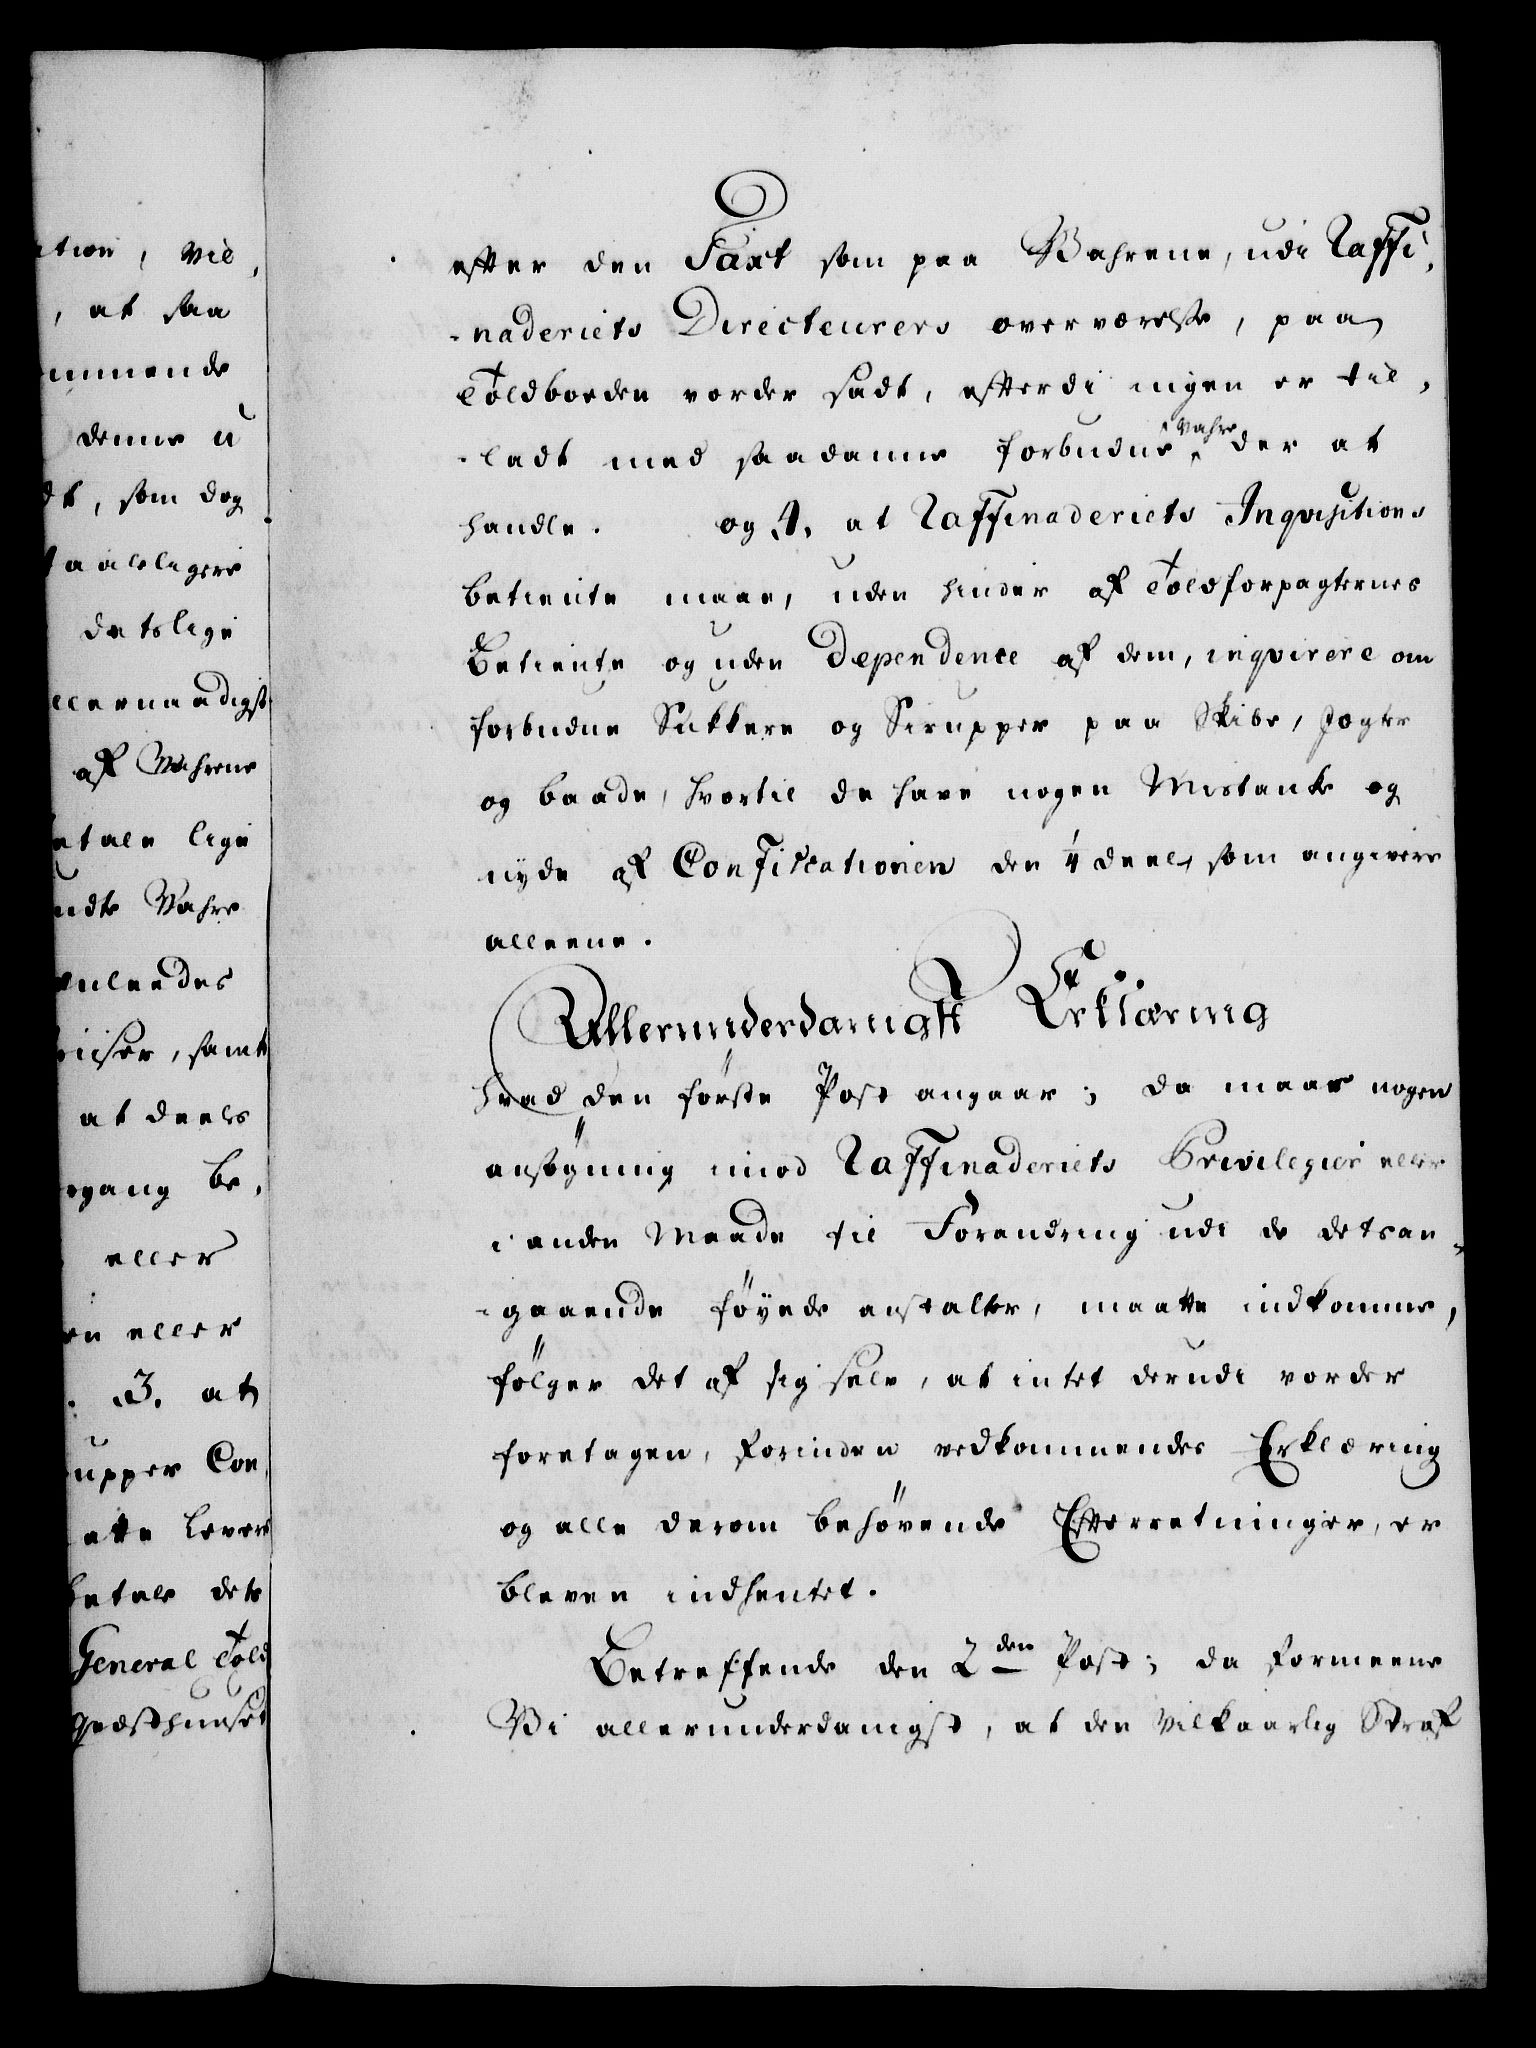 ation, vil,
, at saa
ommende
denne u
dt, som dog
detslige
allernaadigst
af Wahrene
betale lige
Vahre
at deels
be,
eller
en eller
. 3. at
upper Con,
atte levere
betale dets
General Told
efter den Taxt som paa Wahrene, udi Raffi,
-naderiets Directeurers overværelse, paa
Toldboeden vorder sadt, efterdi ingen er til,
-ladt med saadanne forbudne Vahre der at
handle. og 4. at Raffinaderiets Inqvisitions
betiente maae, uden hinder af Toldforpagternes
Betiente og uden Dependence af dem, inqvirere om
forbudne Sukkere og Sirupper paa Skibe, Jagter
og baade, hvortil de have nogen Mistanke og
nyde af Confiscationen den 1/4 deel, som angivere
alleene.
Allerunderdanigst Erklæring
Hvad den første Post angaar; da maae nogen
ansøgning imod Raffinaderiets Privilegier eller
i anden Maade til Forandring udi de detsan-
-gaaende føyede anstalter, maatte indkomme,
følger det af sig selv, at intet derudi vorder
foretagen, forinden vedkommendes Erklæring
og alle derom behøvende Efterretninger, er
bleven indhentet.
Betreffende den 2den Post; da formeene
Vi allerunderdanigst, at den vilkaarlig Straf